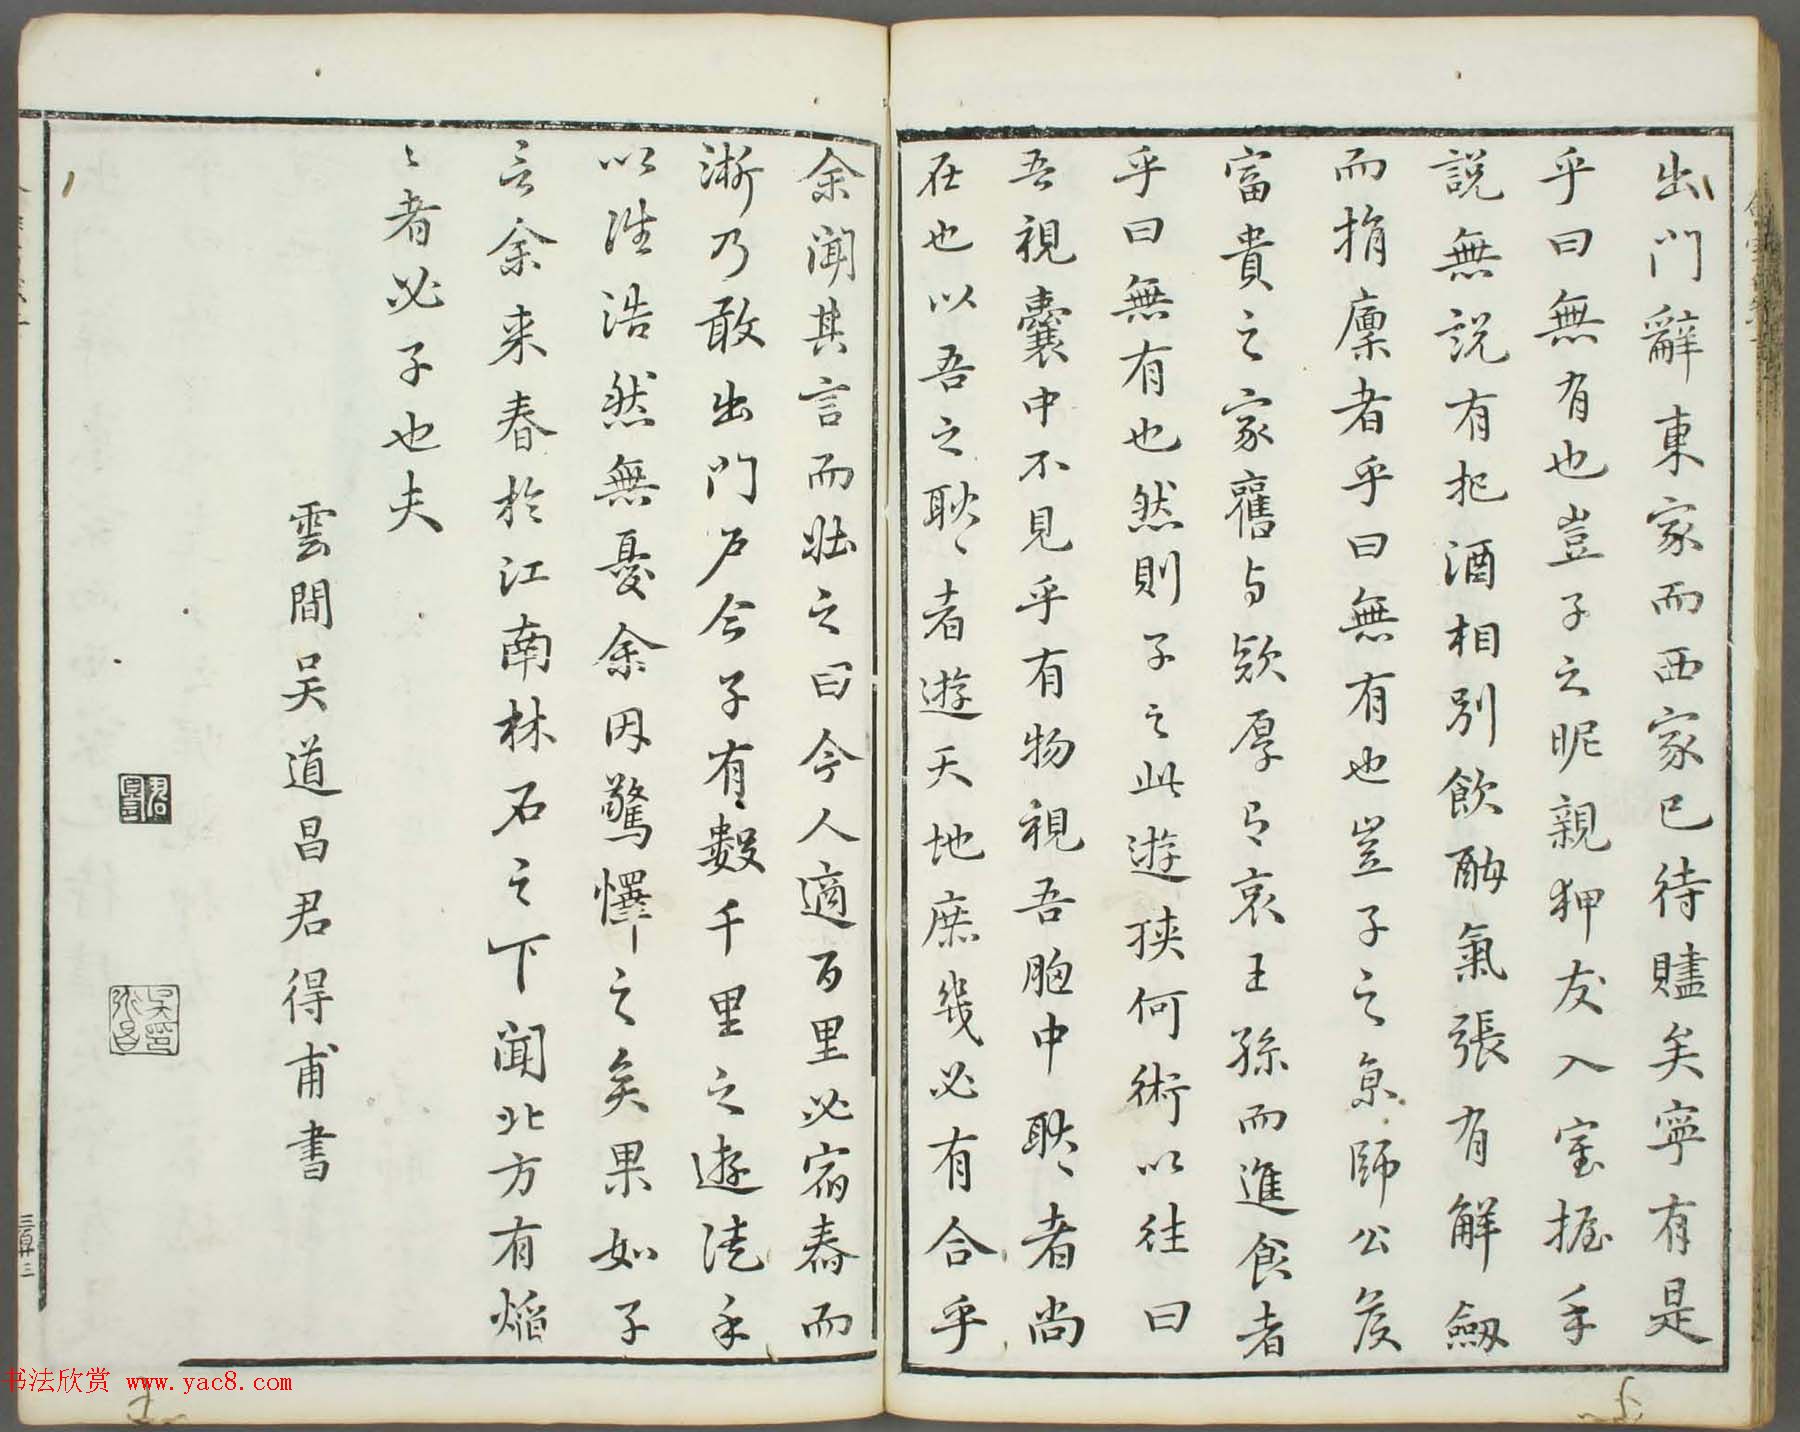 出門辭東家而西家已待贐矣寧有是
乎曰無有也豈子之昵親狎友入室握手
說無說有把酒相別飲酣氣張有解劔
而捐廩者乎曰無有也豈子之京師公侯
富貴之家舊与欵厚有哀王孫而進食者
乎曰無有也然則子之此遊挾何術以往曰
吾視囊中不見乎有物視吾胸中耿〻者尚
在也以吾之耿〻者遊天地庶幾必有合乎
余聞其言而壯之曰今人適百里必宿舂而
淅乃敢出門戶今子有數千里之遊徒手
以往浩然無憂余因驚懌之矣果如子
言余来春於江南林石之下聞北方有焰
〻者必子也夫
雲間吴道昌君得甫書
書法欣赏 www.yac8.com